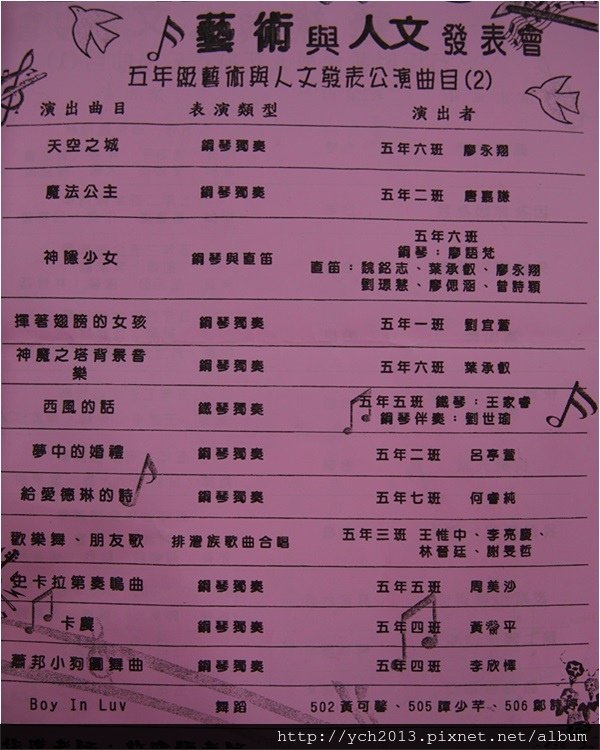 藝術與人文發表會
五年級藝術與人文發表公演曲目(2)
演出曲目 表演類型 演出者
天空之城 鋼琴獨奏 五年六班 廖永翔
魔法公主 鋼琴獨奏 五年二班 唐嘉謙
神隱少女 鋼琴與直笛 五年六班
鋼琴：廖語梵
直笛：魏銘志、葉承叡、廖永翔
劉環慧、廖偲涵、曾詩穎
揮著翅膀的女孩 鋼琴獨奏 五年一班 劉宜萱
神魔之塔背景音樂 鋼琴獨奏 五年六班 葉承叡
西風的話 鐵琴獨奏 五年五班 鐵琴：王家睿
鋼琴伴奏：劉世瑜
夢中的婚禮 鋼琴獨奏 五年二班 呂亭萱
給愛德琳的詩 鋼琴獨奏 五年七班 何睿純
歡樂舞、朋友歌 排灣族歌曲合唱 五年三班 王惟中、李亮慶、
林晉廷、謝旻哲
史卡拉第奏鳴曲 鋼琴獨奏 五年五班 周美沙
卡農 鋼琴獨奏 五年四班 黃 平
蕭邦小狗圓舞曲 鋼琴獨奏 五年四班 李欣
Boy In Luv 舞蹈 502 黃可馨、505 譚少芊、506 鄭
http://ych2013.pixnet.net/album